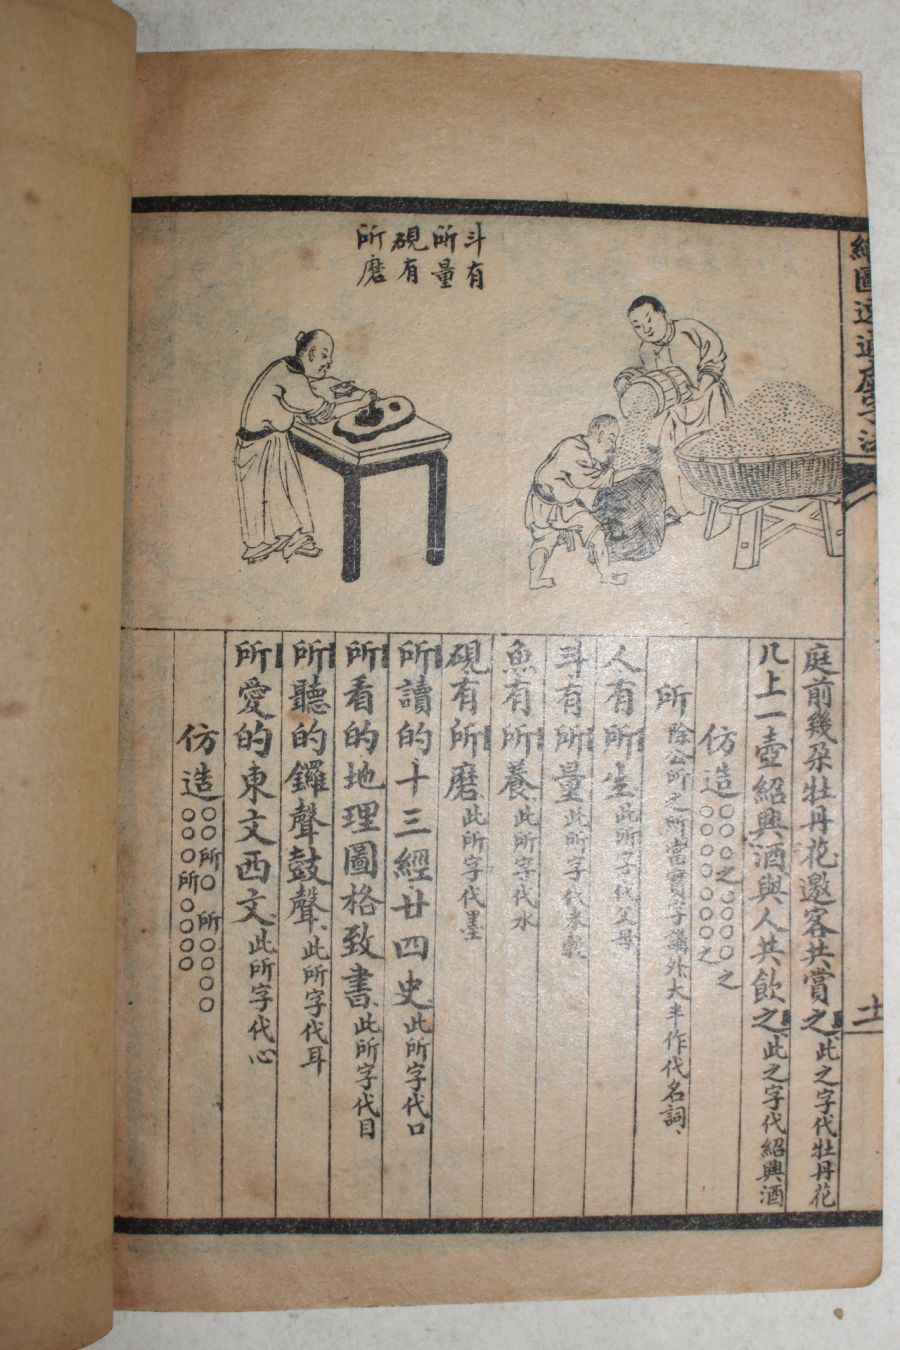 繪圖速通虛字法
十一
斗有
所量
硯有
所磨
庭前幾朵牡丹花邀客共賞之此之字代牡丹花
几上一壺紹興酒與人共飲之此之字代紹興酒
仿造○○○之○○○○之
○○○○○○○之
所除公所之所當實字講外大半作代名詞、
人有所生此所字代父母
斗有所量此所字代米穀
魚有所養此所字代水
硯有所磨此所字代墨
所讀的十三經廿四史此所字代口
所看的地理圖格致書此所字代目
所聽的鑼聲鼓聲此所字代耳
所愛的東文西文此所字代心
仿造○○所○ 所○○○○
○○○所○○○○